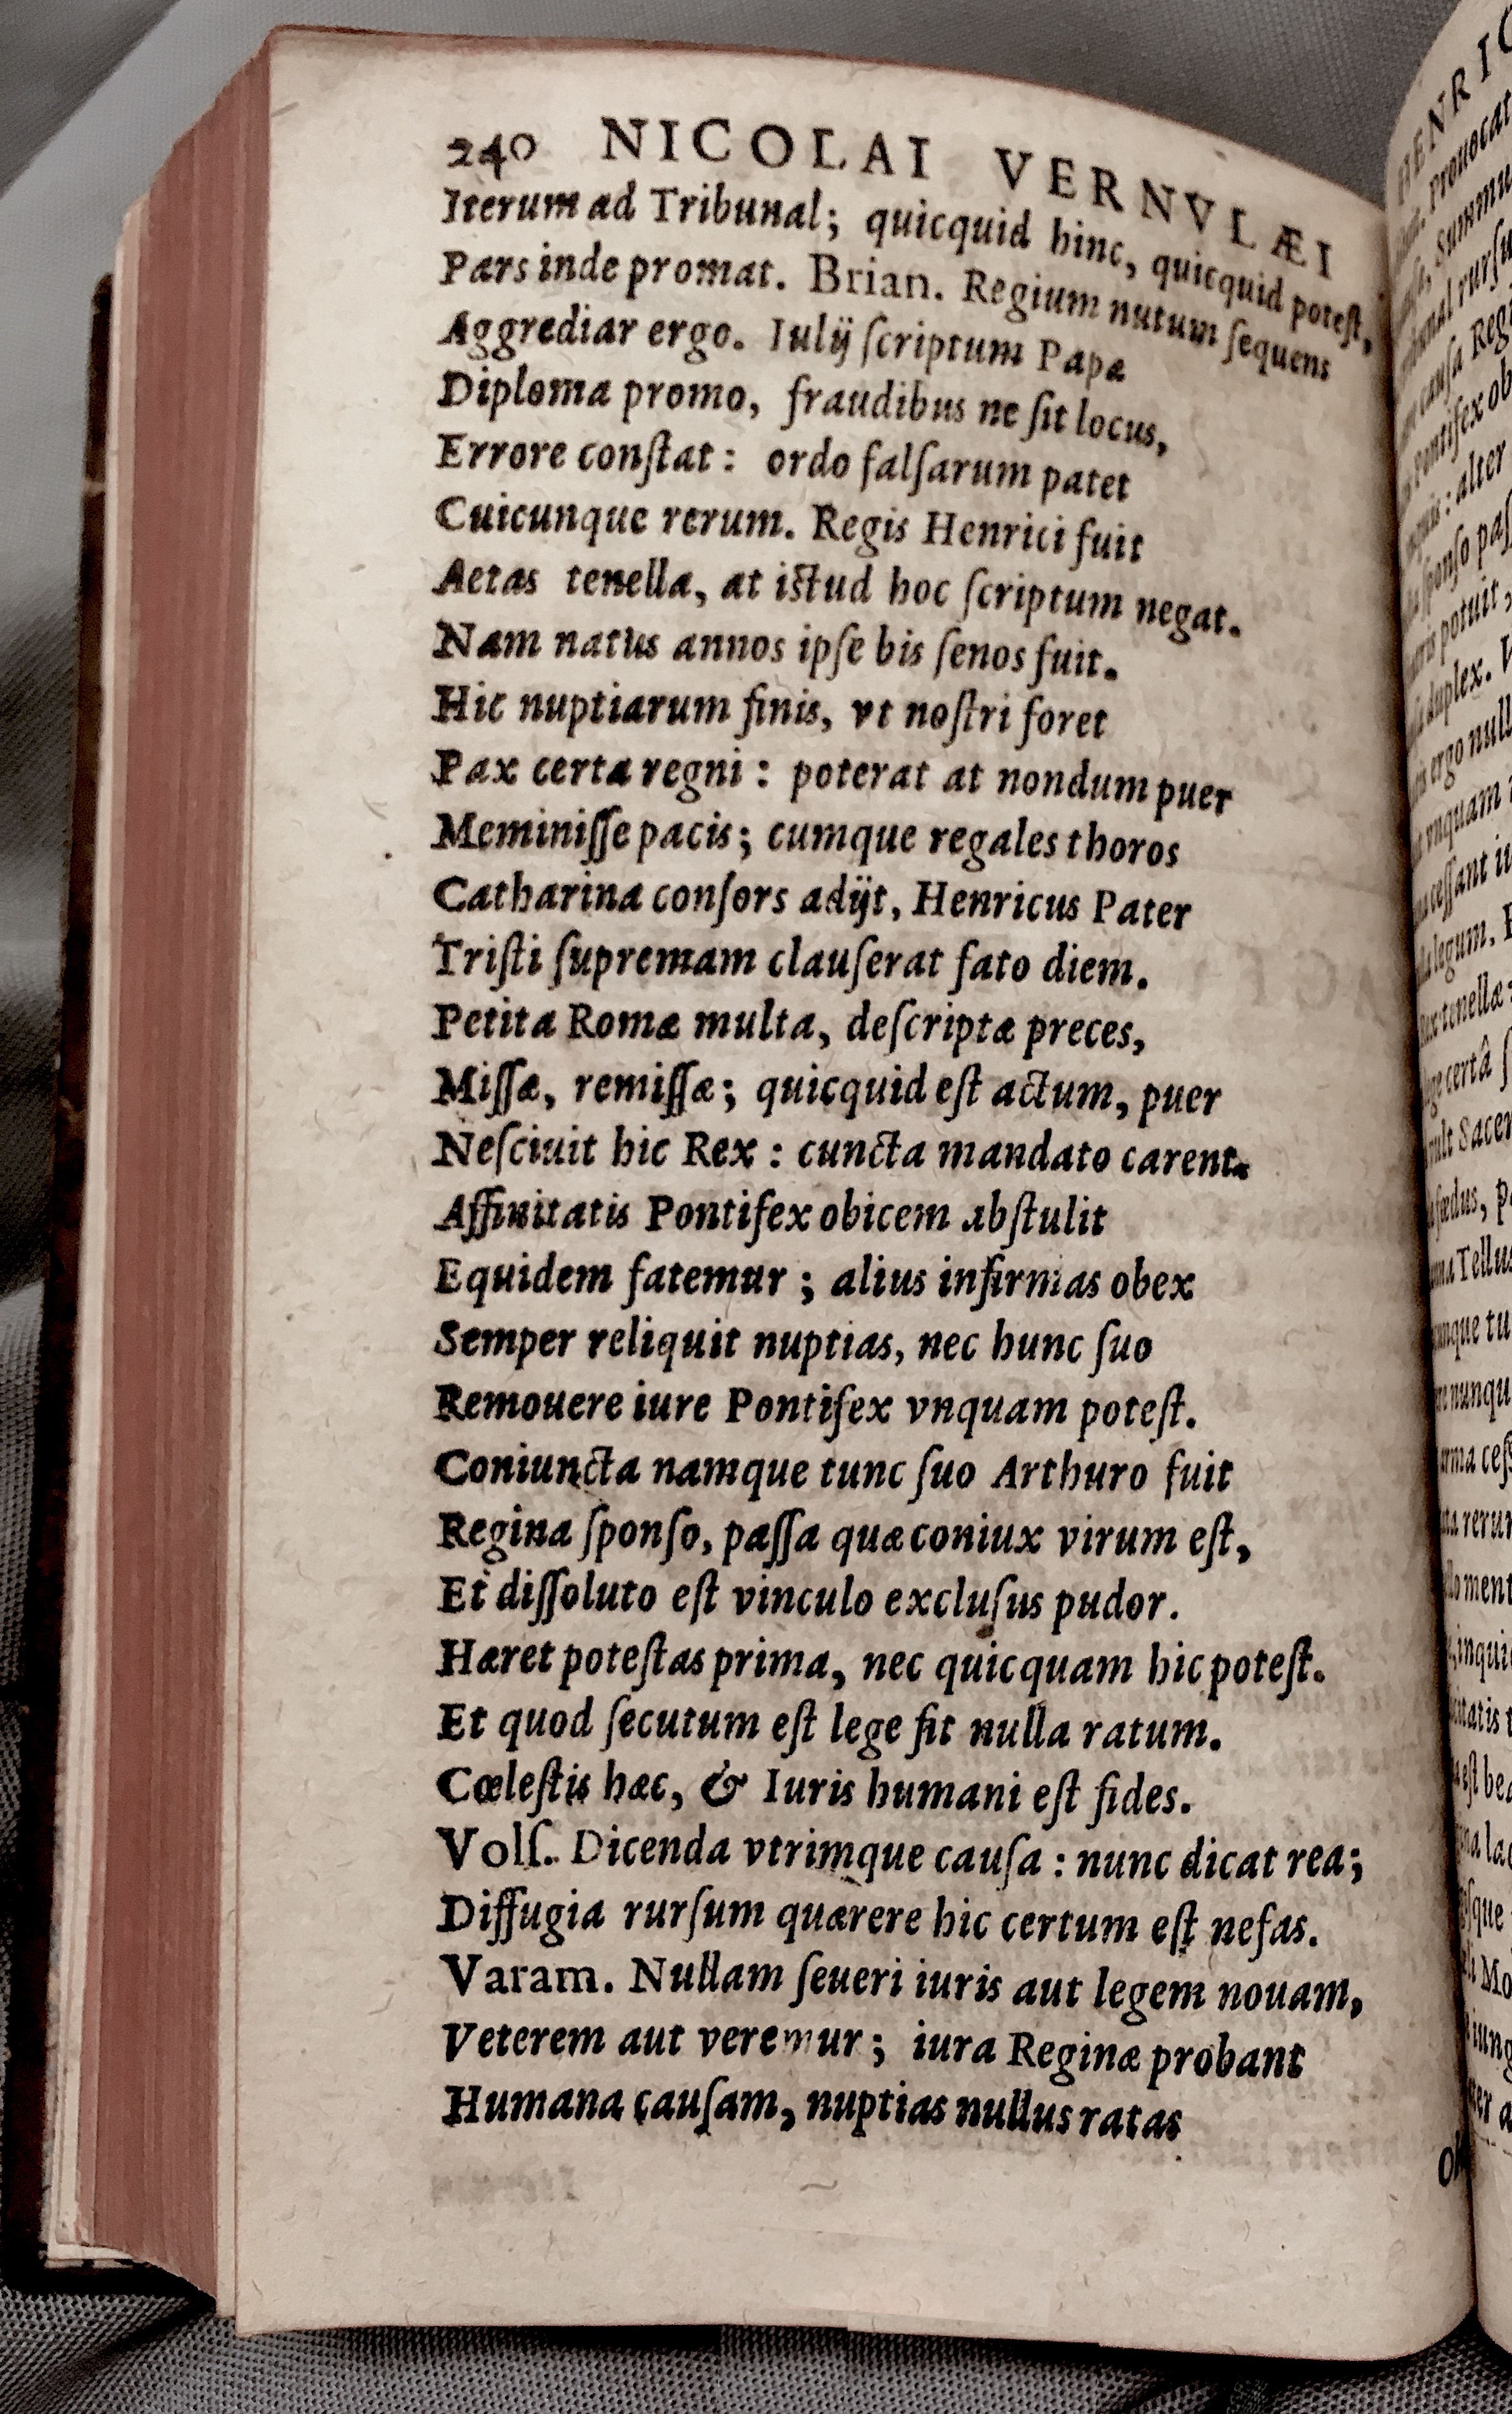 240 NICOLAI VERNVLÆI
Iterum ad Tribunal; quicquid hinc, quicquid poteſt,
Pars inde promat. Brian. Regium nutum ſequens
Aggrediar ergo. Iulij ſcriptum Papæ
Diploma promo, fraudibus ne ſit locus,
Errore conſtat: ordo falſarum patet
Cuicunque rerum. Regis Henrici fuit
Aetas tenella, at iſtud hoc ſcriptum negat.
Nam natus annos ipſe bis ſenos fuit.
Hic nuptiarum finis, vt noſtri foret
Pax certa regni: poterat at nondum puer
Meminiſſe pacis; cumque regales thoros
Catharina conſors adijt, Henricus Pater
Triſti ſupremam clauſerat fato diem.
Petita Romæ multa, deſcriptæ preces,
Miſſæ, remiſſæ; quicquid eſt actum, puer
Neſciuit hic Rex: cuncta mandato carent.
Affinitatis Pontifex obicem abſtulit
Equidem fatemur; alius infirmas obex
Semper reliquit nuptias, nec hunc ſuo
Remouere iure Pontifex vnquam poteſt.
Coniuncta namque tunc ſuo Arthuro fuit
Regina ſponſo, paſſa quæ coniux virum eſt,
Et diſſoluto eſt vinculo excluſus pudor.
Hæret poteſtas prima, nec quicquam hic poteſt.
Et quod ſecutum eſt lege fit nulla ratum.
Cœleſtis hæc, & Iuris humani eſt fides.
Volſ. Dicenda vtrimque cauſa: nunc dicat rea;
Diffugia rurſum quærere hic certum eſt nefas.
Varam. Nullam ſeueri iuris aut legem nouam,
Veterem aut veremur; iura Reginæ probant
Humana cauſam, nuptias nullus ratas
HENRIC
Prouocat
Summu
rurſu
cauſa Reg
Pontifex ob
alter
ſponſo paſ
potuit,
duplex. V
ergo null
vnquam
ceſſant
legum.
tenellæ
certâ
Sacer
fœdus,
Tellus
tu
nunqu